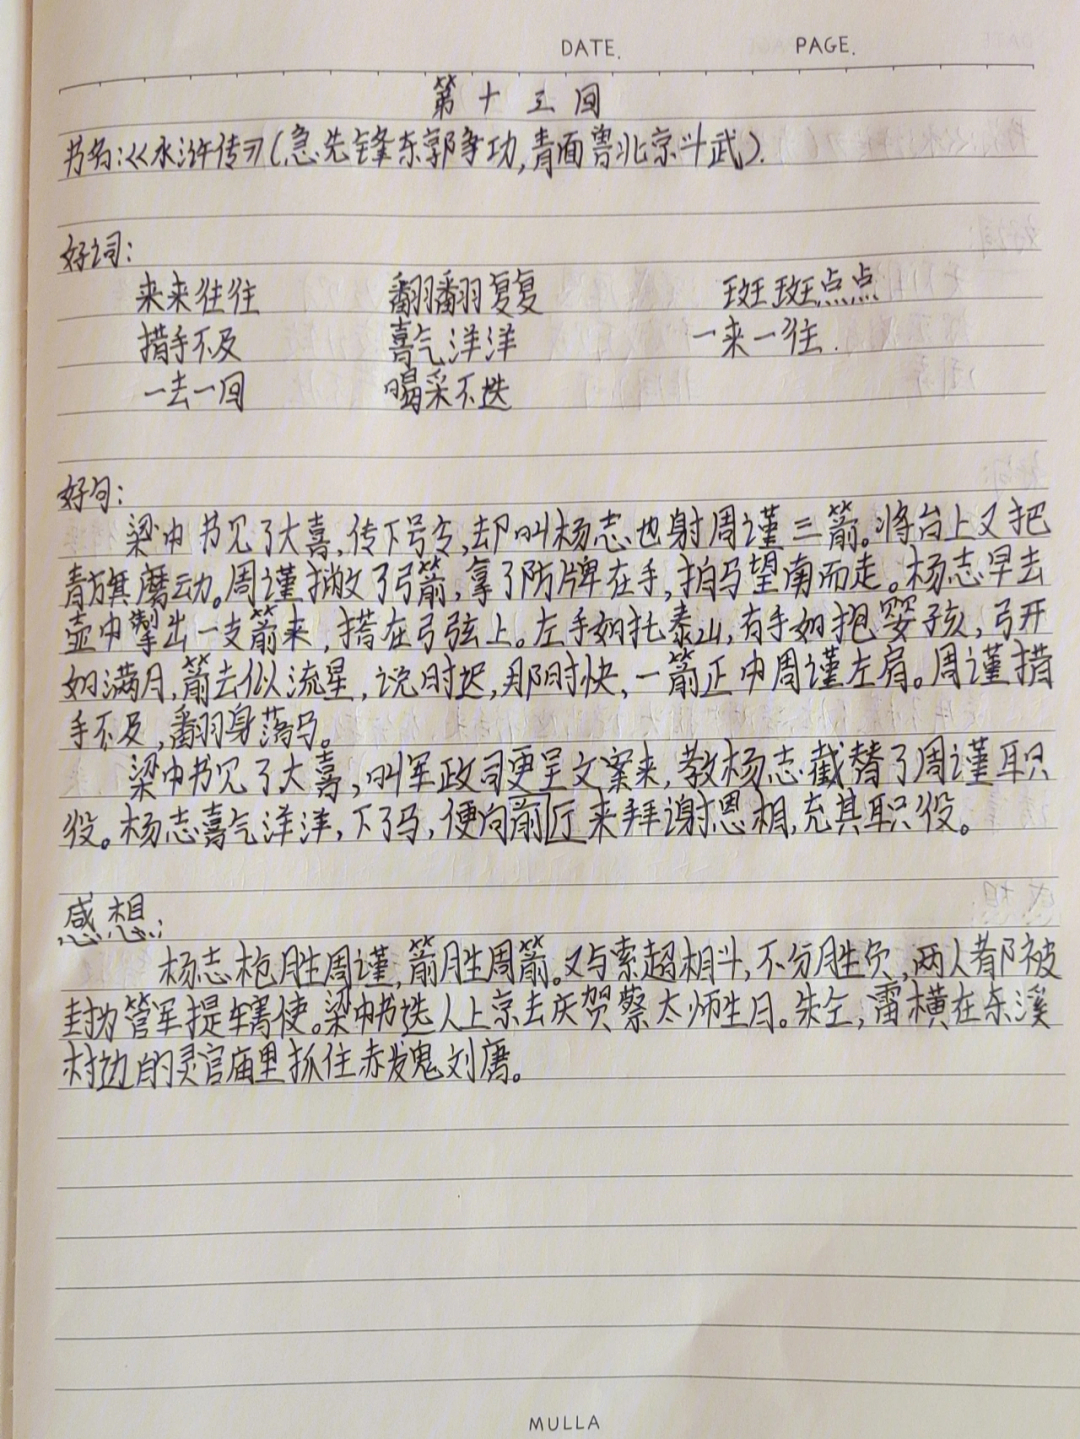 DATE. PAGE.
第十三回
书名:《水浒传》(急先锋东郭争功,青面兽北京斗武).
好词:
来来往往 翻翻复复 斑斑点点
措手不及 喜气洋洋 一来一往.
一去一回 喝采不迭
好句:
梁中书见了大喜,传下号令,却叫杨志也射周谨三箭。将台上又把
青旗磨动。周谨撇了弓箭,拿了防牌在手,拍马望南而走。杨志早去
壶中掣出一支箭来,搭在弓弦上。左手如托泰山,右手如抱婴孩,弓开
如满月,箭去似流星,说时迟,那时快,一箭正中周谨左肩。周谨措
手不及,翻身落马。
梁中书见了大喜,叫军政司更呈文案来,教杨志截替了周谨职
役。杨志喜气洋洋,下了马,便向前厅来拜谢恩相,充其职役。
感想:
杨志枪胜周谨,箭胜周箭。又与索超相斗,不分胜负,两人都被
封为管军提辖使。梁中书选人上京去庆贺蔡太师生日。朱仝,雷横在东溪
村边的灵官庙里抓住赤发鬼刘唐。
MULLA